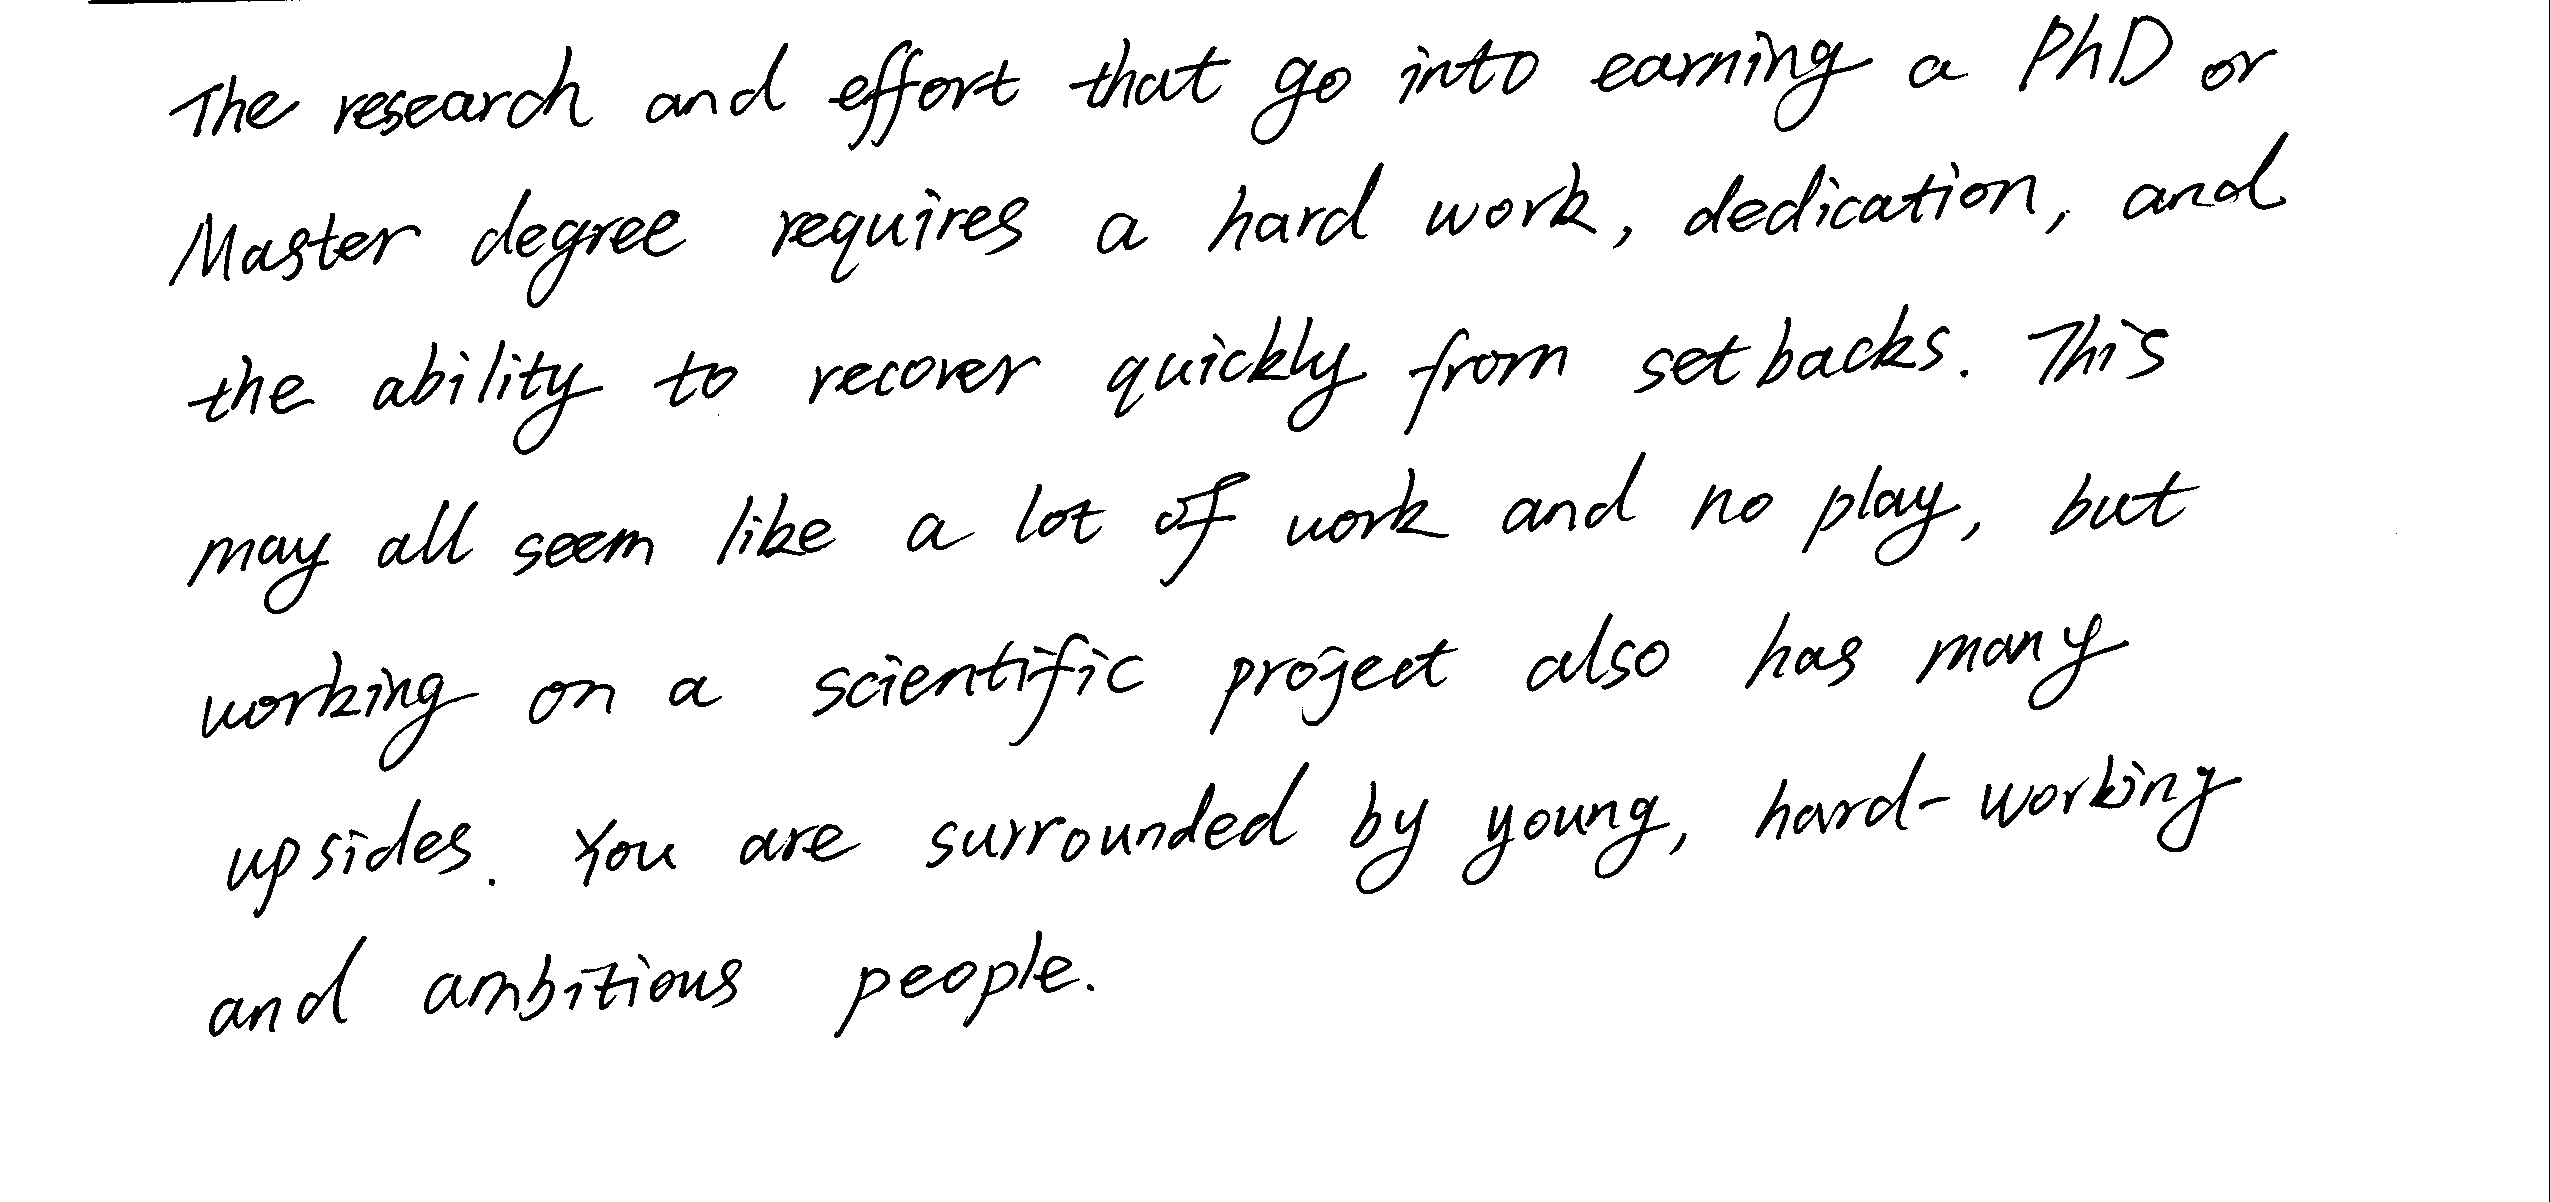 The research and effort that go into earning a PhD or
Master degree requires a hard work, dedication, and
the ability to recover quickly from setbacks. This
may all seem like a lot of work and no play, but
working on a scientific project also has many
upsides. You are surrounded by young, hard-working
and ambitious people.